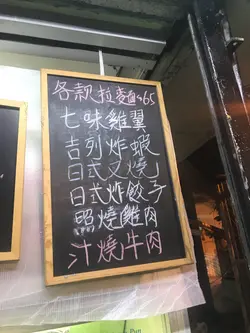 各款拉麵$65
七味雞翼
吉列炸蝦
日式叉燒
日式炸餃子
照燒雞肉
汁燒牛肉